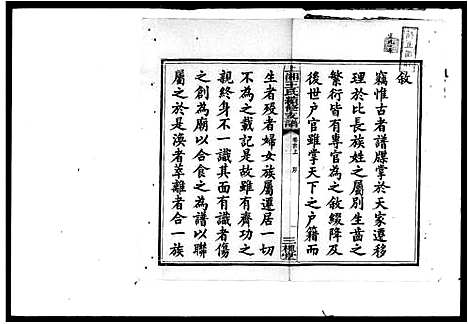 敘
竊惟古者譜牒掌於天家遷移
理於比長族姓之屬別生齒之
繁衍皆有專官為之敘綴降及
後世户官雖掌天下之户籍而
上湘王氏續修支譜
卷首上
三槐堂
生者殁者婦女族屬遷居一切
不為之記載雖有齊功之
親終身不一識其面有識者傷
之創為廟以合食之為譜以聯
屬之於渙者萃離者合一族